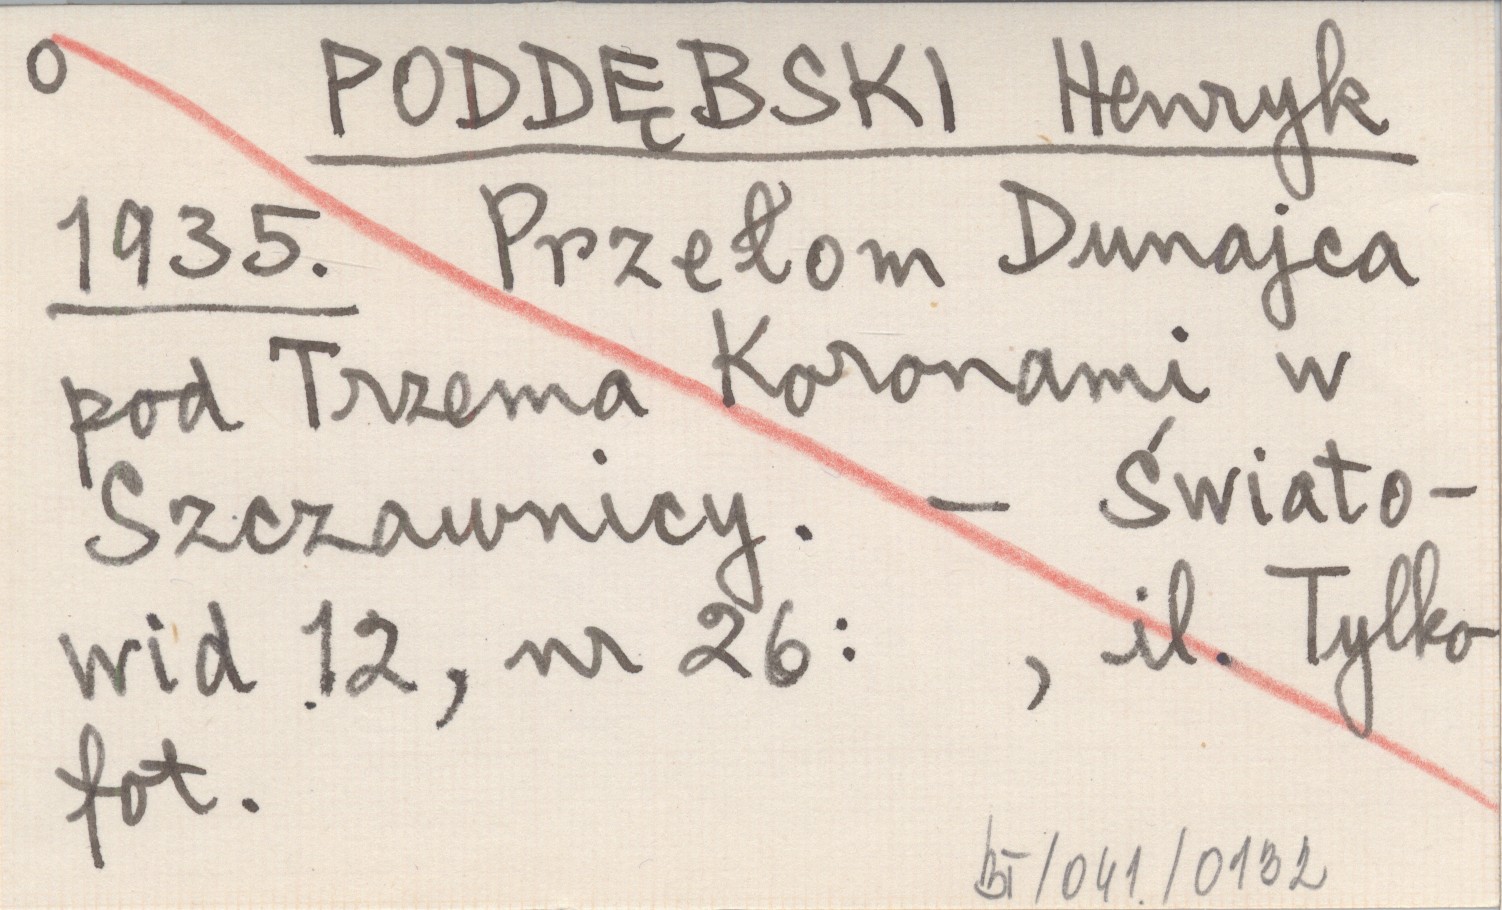 O PODDĘBSKI Henryk
1935. Przełom Dunajca
pod Trzema Koronami w
Szczawnicy. — Świato-
wid 12, nr 26: , il. Tylko
fot.
BT/041/0132